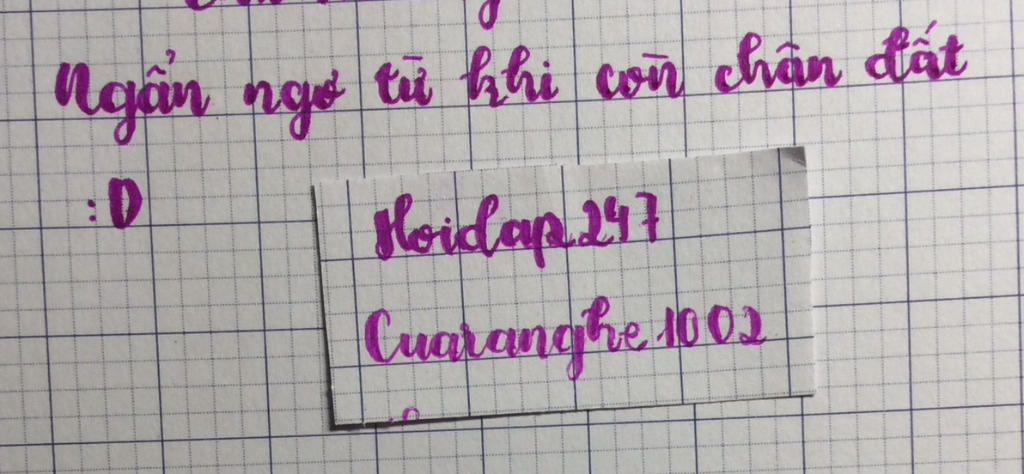 Ngẩn ngơ từ khi còn chân đất
:D
Hoidap247
Cuaranghe1002